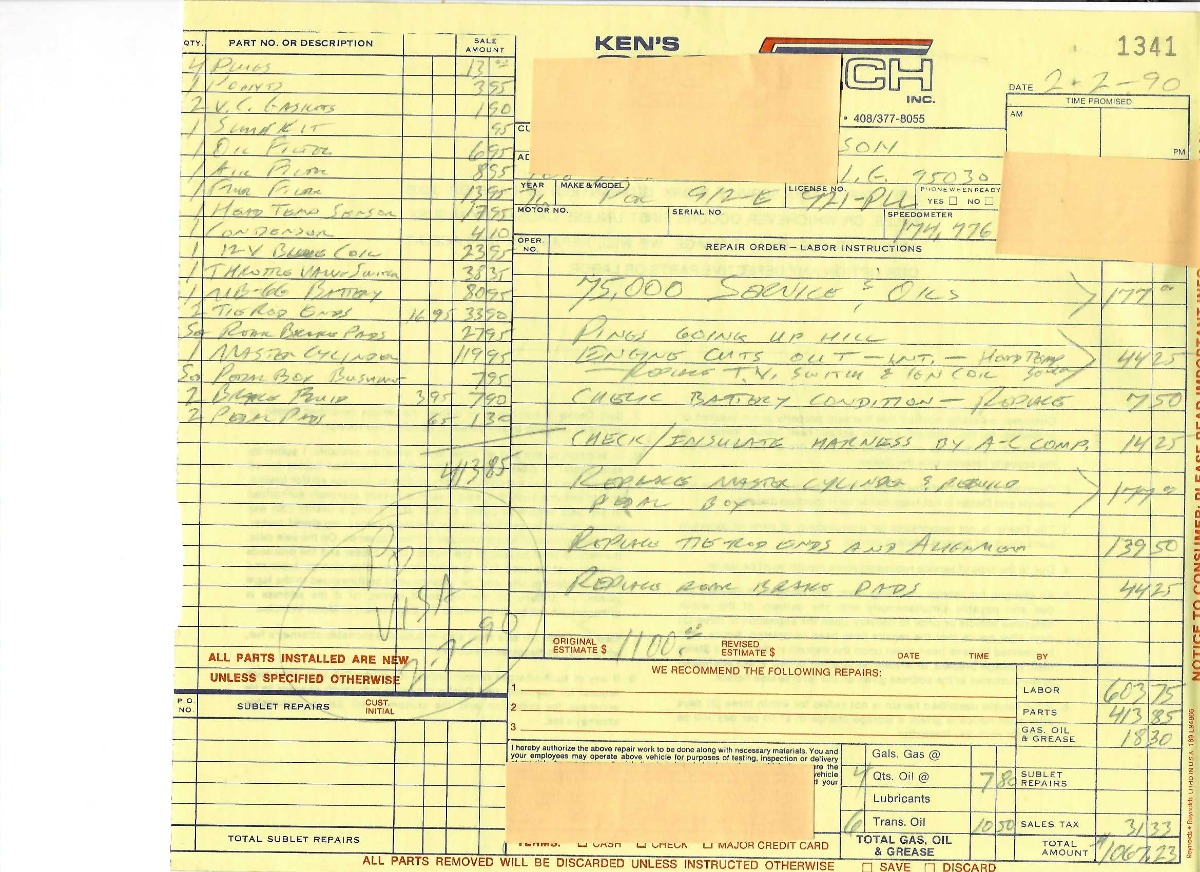 KEN'S
CH
INC.
1341
• 408/377-8055
DATE 2-2-90
TIME PROMISED
AM
PM
CU
SON
AD
L.G. 95030
YEAR MAKE & MODEL LICENSE NO. PHONE WHEN READY
76 POR 912-E 921-PLL YES NO
MOTOR NO. SERIAL NO. SPEEDOMETER
174,776
QTY. PART NO. OR DESCRIPTION SALE AMOUNT
4 PLUGS 13 00
1 POINTS 3 95
2 V.C. GASKETS 1 90
1 SUMP KIT 95
1 OIL FILTER 6 95
1 AIR FILTER 8 95
1 FUEL FILTER 13 95
1 HEAD TEMP SENSOR 17 95
1 CONDENSOR 4 10
1 12-V BLUE COIL 23 95
1 THROTTLE VALVE SWITCH 38 35
1 BATTERY 80 95
2 TIE ROD ENDS 16 95 33 90
Set REAR BRAKE PADS 27 95
1 MASTER CYLINDER 119 95
Set PEDAL BOX BUSHING 7 95
2 BRAKE FLUID 3 95 7 90
2 PEDAL PADS 65 1 30
413 85
PD
VISA
2-7-90
ALL PARTS INSTALLED ARE NEW
UNLESS SPECIFIED OTHERWISE
P.O. NO. SUBLET REPAIRS CUST. INITIAL
TOTAL SUBLET REPAIRS
OPER. NO. REPAIR ORDER – LABOR INSTRUCTIONS
75,000 SERVICE & OILS 177 00
PINGS GOING UP HILL
ENGINE CUTS OUT – INT. – HEAD TEMP 44 25
– REPLACE T.V. SWITCH & IGN COIL
CHECK BATTERY CONDITION – REPLACE 7 50
CHECK/INSULATE HARNESS BY A-C COMP. 14 25
REPLACE MASTER CYLINDER & REBUILD 177 00
PEDAL BOX
REPLACE TIE ROD ENDS AND ALIGNMENT 139 50
REPLACE REAR BRAKE PADS 44 25
ORIGINAL ESTIMATE $ 1100.00 REVISED ESTIMATE $ DATE TIME BY
WE RECOMMEND THE FOLLOWING REPAIRS:
1
2
3
LABOR 603 75
PARTS 413 85
GAS, OIL & GREASE 18 30
SUBLET REPAIRS
SALES TAX 31 33
TOTAL AMOUNT $1067.23
I hereby authorize the above repair work to be done along with necessary materials. You and
your employees may operate above vehicle for purposes of testing, inspection or delivery
Gals. Gas @
4 Qts. Oil @ 7 80
Lubricants
6 Trans. Oil 10 50
TOTAL GAS, OIL & GREASE
TERMS: CASH CHECK MAJOR CREDIT CARD
ALL PARTS REMOVED WILL BE DISCARDED UNLESS INSTRUCTED OTHERWISE SAVE DISCARD